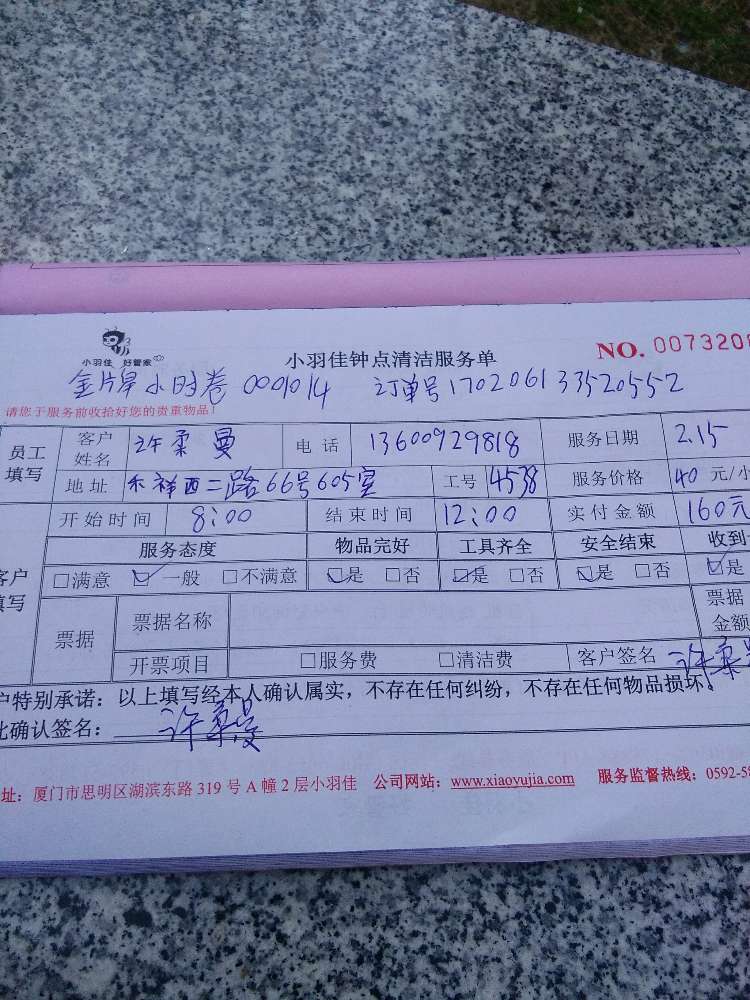 小羽佳 好管家
小羽佳钟点清洁服务单
NO. 0073206
金牌小时卷 0001014 订单号17020613352 0552
请您于服务前收拾好您的贵重物品！
员工填写 客户姓名 许柔曼 电话 13600929818 服务日期 2.15
地址 禾祥西二路66号605室 工号 4538 服务价格 40元/小
开始时间 8:00 结束时间 12:00 实付金额 160元
服务态度 物品完好 工具齐全 安全结束 收到
客户填写 □满意 ☑一般 □不满意 ☑是 □否 ☑是 □否 ☑是 □否 ☑是
票据 票据名称 票据金额
开票项目 □服务费 □清洁费 客户签名 许柔曼
户特别承诺：以上填写经本人确认属实，不存在任何纠纷，不存在任何物品损坏。
此确认签名： 许柔曼
址：厦门市思明区湖滨东路 319 号 A 幢 2 层小羽佳 公司网站：www.xiaoyujia.com 服务监督热线：0592-58